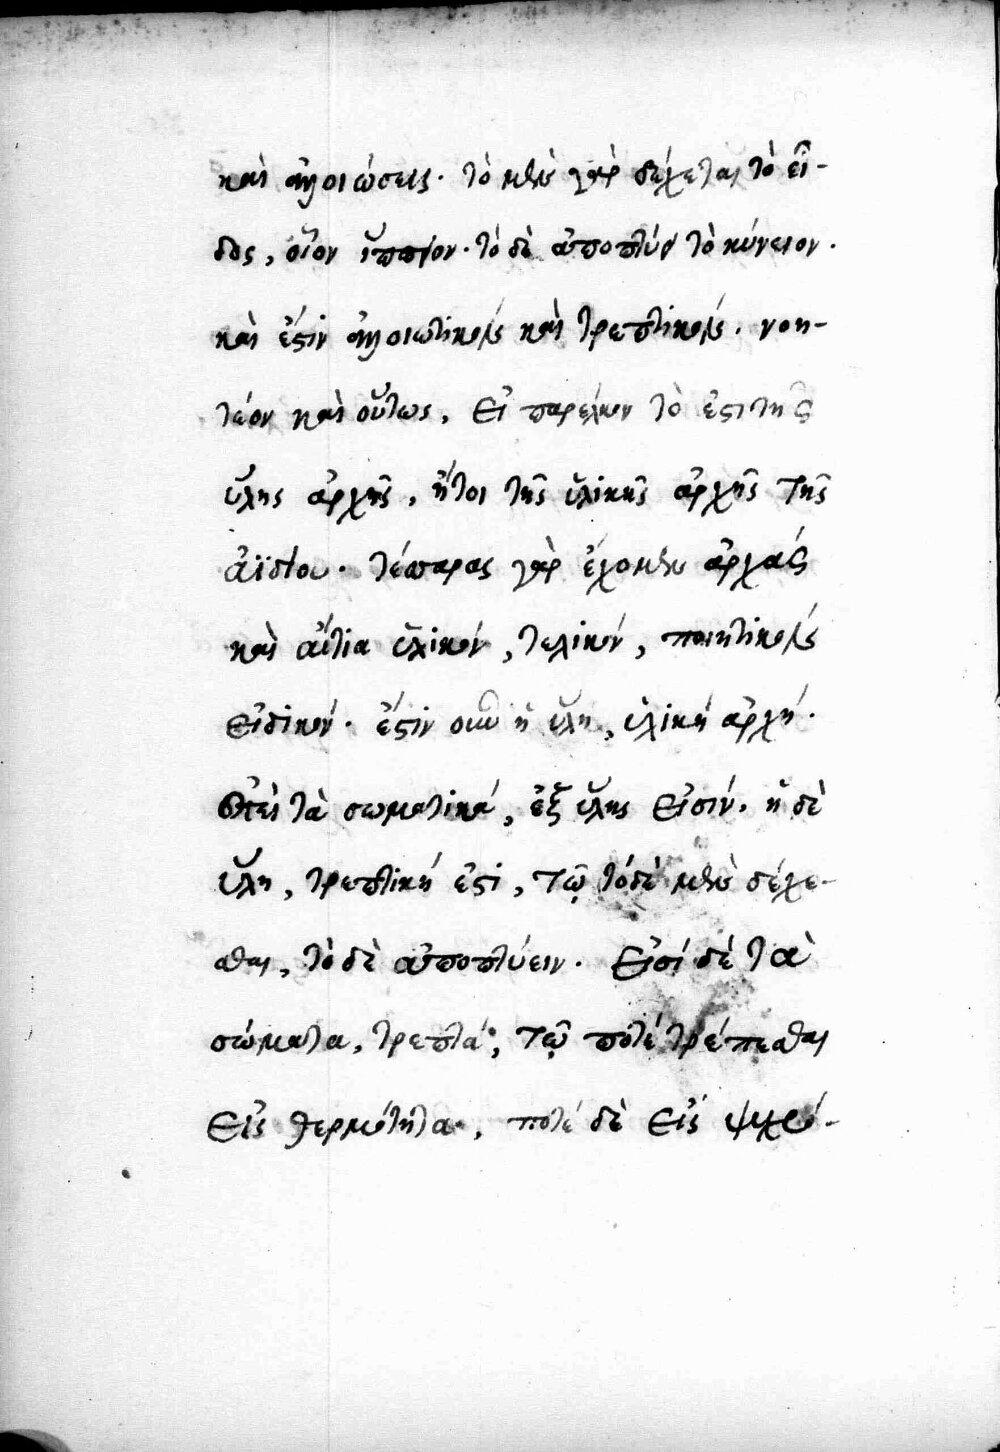 καὶ ἀλλοιώσεις. τὸ μὲν γὰρ δέχεται τὸ εἶ-
δος, οἷον ἵππιον. τὸ δὲ ἀποπτύει τὸ κύνειον.
καὶ ἔστιν ἀλλοιωτικὸς καὶ τρεπτικὸς. νοη-
τέον καὶ οὕτως, εἰ παρέλκον τὸ ἐστι τῆς
ὕλης ἀρχῆς, ἤτοι τῆς ὑλικῆς ἀρχῆς τῆς
ἀϊδίου. τέσσαρας γὰρ ἔχομεν ἀρχάς
καὶ αἴτια ὑλικόν, τελικόν, ποιητικὸν
εἰδικόν. ἔστιν οὖν ἡ ὕλη, ὑλική ἀρχή.
ἐπεὶ τὰ σωματικά, ἐξ ὕλης εἰσίν. ἡ δὲ
ὕλη, τρεπτική ἐστι, τῷ τόδε μὲν δέχε-
σθαι, τὸ δὲ ἀποπτύειν. εἰσί δέ τὰ
σώματα, τρεπτά, τῷ ποτέ τρέπεσθαι
εἰς θερμότητα, ποτέ δὲ εἰς ψυχρό-